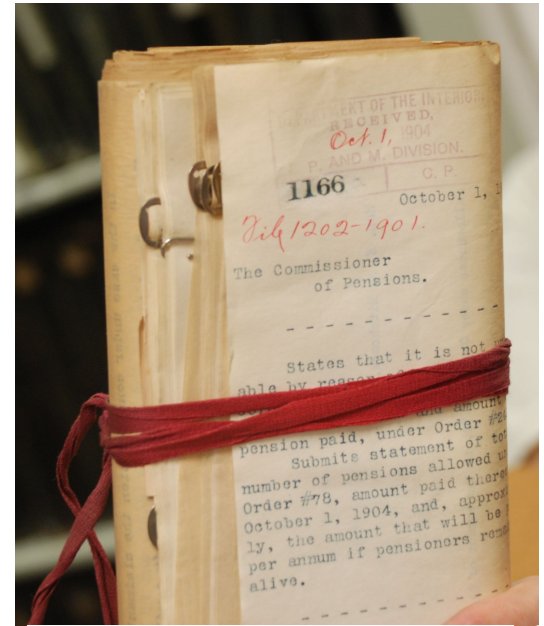 DEPARTMENT OF THE INTERIOR
RECEIVED,
Oct. 1, 1904
P. AND M. DIVISION.
1166 C. P.
October 1, 1
File 1202-1901.
The Commissioner
of Pensions.
- - - - - - - - - - - -
States that it is not
able by reason of
and amount
pension paid, under Order #
Submits statement of tot
number of pensions allowed u
Order #78, amount paid there
October 1, 1904, and, approx
ly, the amount that will be
per annum if pensioners rema
alive.
- - - - - - - - - -